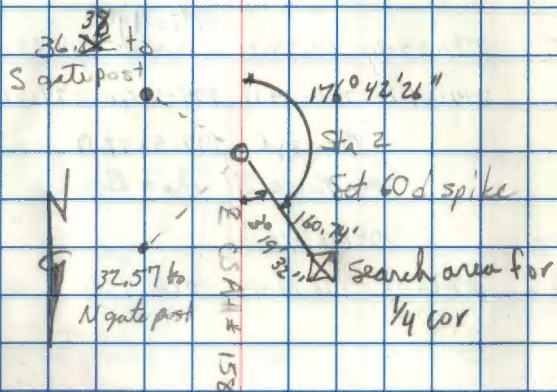 38
36. to
S gate post
176° 42' 26"
Sta 2
Set 60d spike
160.74'
19' 32"
Search area for
1/4 cor
32.57 to
N gate post
℄ CSAH # 158
N